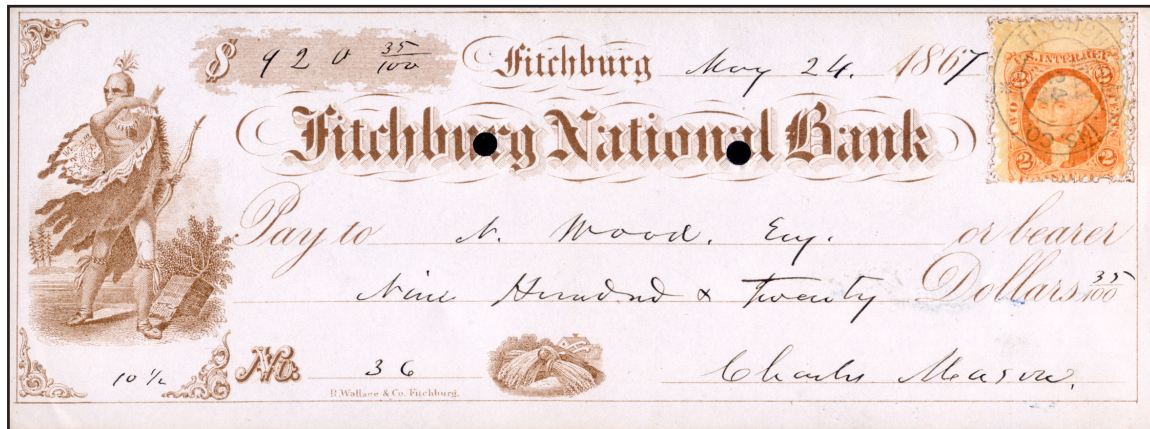 $ 920 35/100 Fitchburg May 24. 1867
Fitchburg National Bank
Pay to N. Wood. Esq. or bearer
Nine Hundred & Twenty Dollars 35/100
10 1/2 No. 36 Charles Mason.
R. Wallace & Co. Fitchburg.
U.S. INTER. REV.
TWO CENTS
2 2
2 2